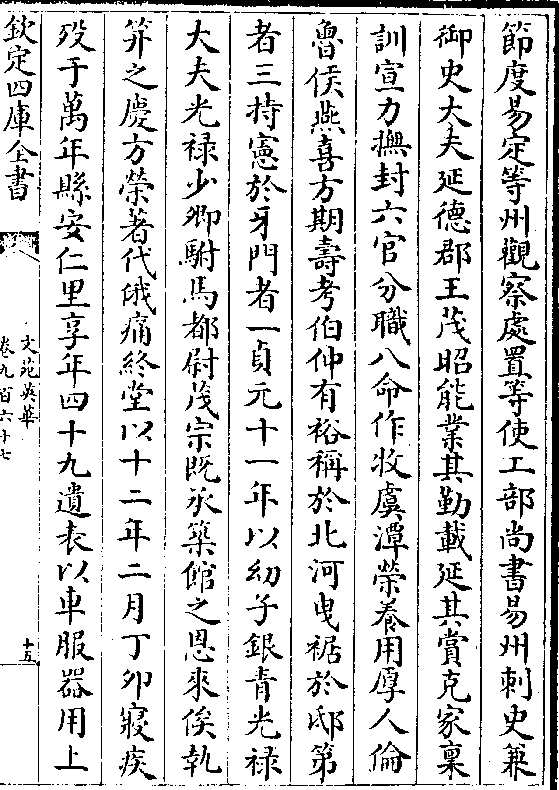 節度易定等州觀察處置等使工部尚書易州刺史兼
御史大夫延德郡王茂昭能業其勤載延其賞克家稟
訓宣力撫封六官分職八命作牧虞潭榮養用厚人倫
魯侯燕喜方期壽考伯仲有裕稱於北河曵裾於邸第
者三持憲於牙門者一貞元十一年以幼子銀青光禄
大夫光禄少卿駙馬都尉茂宗既承築館之恩來俟執
笄之慶方榮著代俄痛終堂以十二年二月丁夘寢疾
歿于萬年縣安仁里享年四十九遺表以車服器用上
欽定四庫全書
文苑英華
卷九百六十七
十五